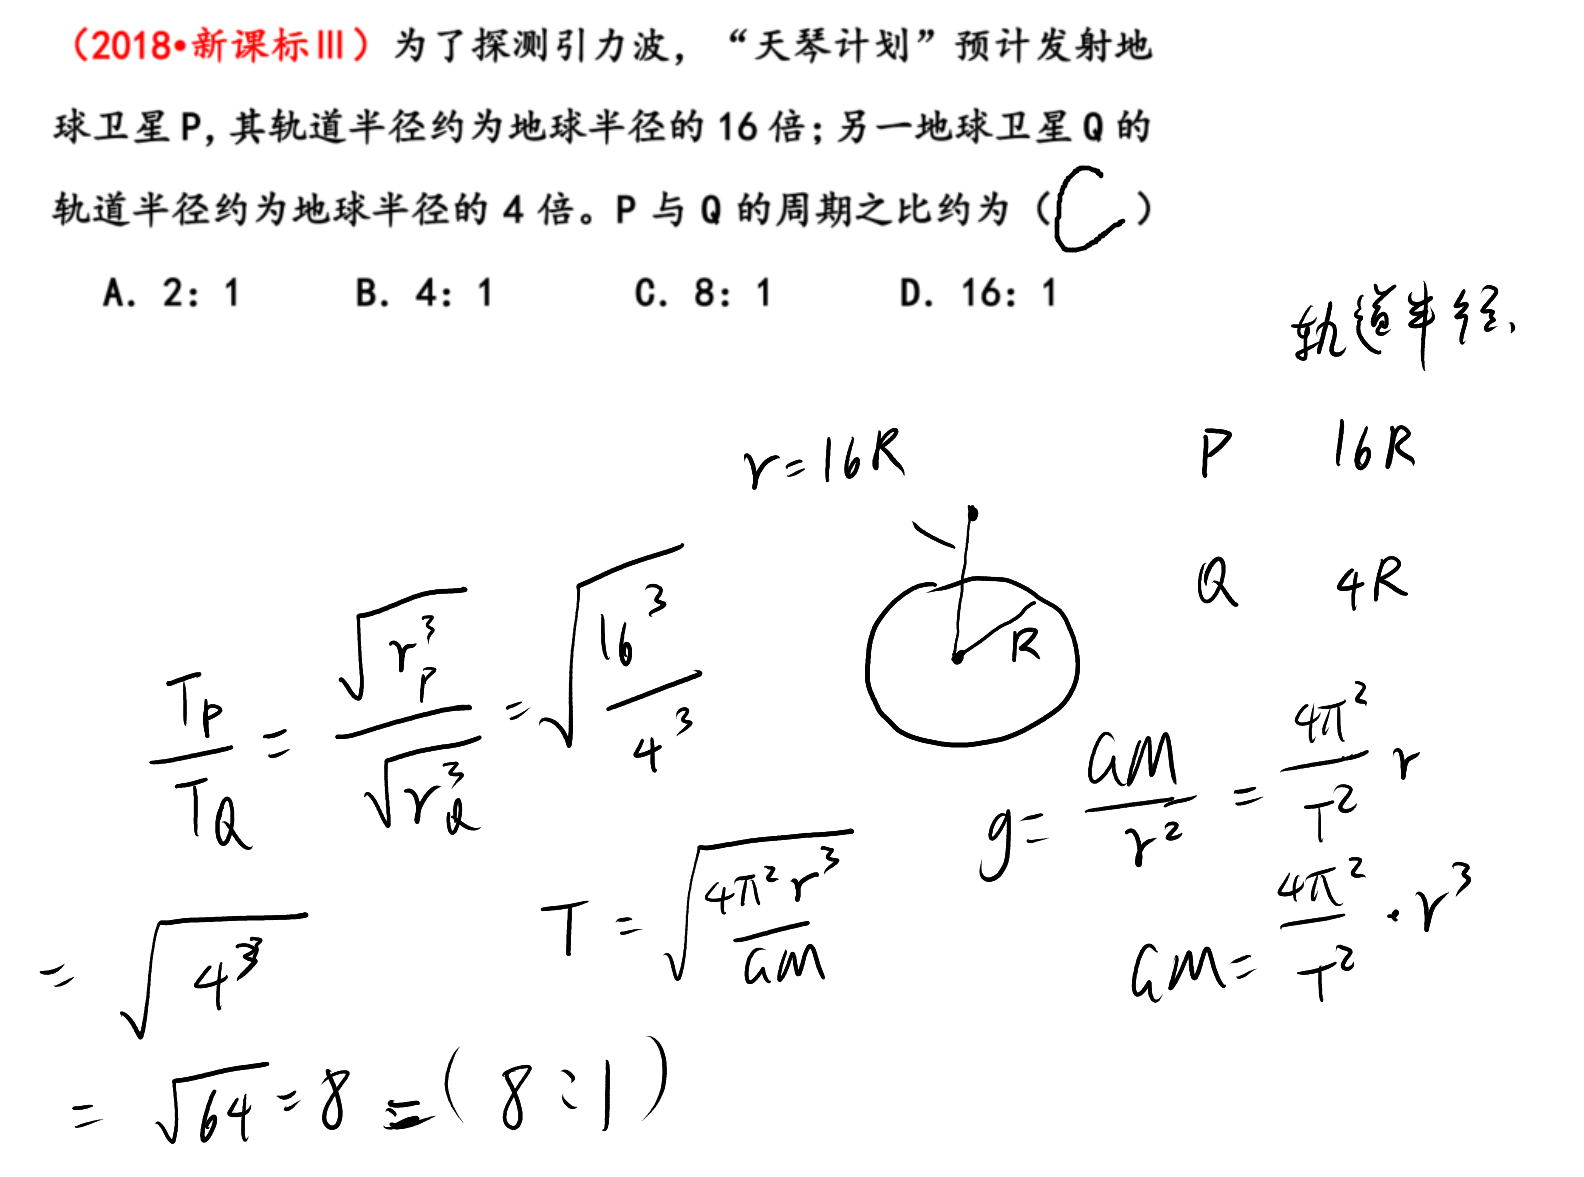 （2018•新课标Ⅲ）为了探测引力波，“天琴计划”预计发射地
球卫星P，其轨道半径约为地球半径的16倍；另一地球卫星Q的
轨道半径约为地球半径的4倍。P与Q的周期之比约为（C）
A. 2：1 B. 4：1 C. 8：1 D. 16：1
轨道半径.
r=16R
P 16R
Q 4R
R
T_P/T_Q = √(r_P^3)/√(r_Q^3) = √(16^3/4^3)
g= GM/r^2 = 4π^2/T^2 r
= √(4^3)
T = √(4π^2r^3/GM)
GM= 4π^2/T^2 · r^3
= √64 = 8 = (8:1)